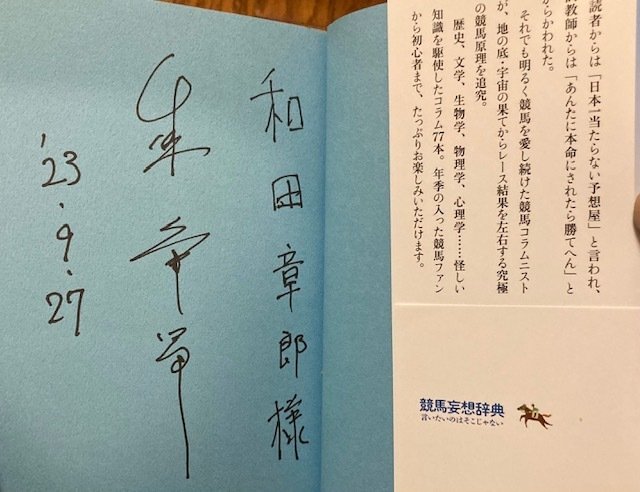 読者からは「日本一当たらない予想屋」と言われ、
教師からは「あんたに本命にされたら勝てへん」と
からかわれた。
それでも明るく競馬を愛し続けた競馬コラムニスト
が、地の底・宇宙の果てからレース結果を左右する究極
の競馬原理を追究。
歴史、文学、生物学、物理学、心理学……怪しい
知識を駆使したコラム77本。年季の入った競馬ファン
から初心者まで、たっぷりお楽しみいただけます。
競馬妄想辞典
言いたいのはそこじゃない
和田章郎様
'23.9.27